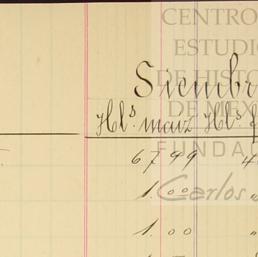 CENTRO
ESTUDI
DE HISTO
DE MEX
FUNDAC
Carlos
Siembr
Hls. maiz Hls. f
67 99 4
1. 00 "
1. 00 "